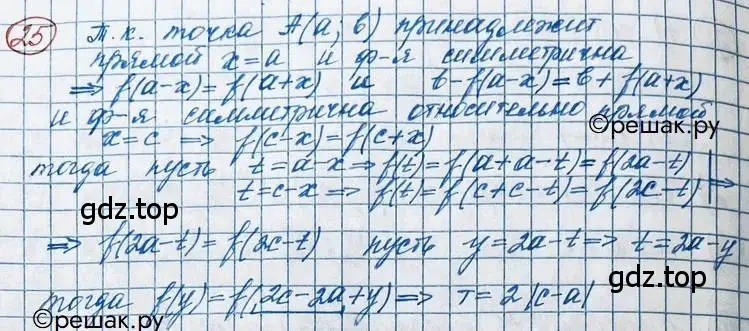 25 Т.к. точка A(a; b) принадлежит
прямой x=a и ф-я симметрична
=> f(a-x)=f(a+x) и b-f(a-x)=b+f(a+x)
и ф-я симметрична относительно прямой
©решак.ру
x=c => f(c-x)=f(c+x)
тогда пусть t=a-x => f(t)=f(a+a-t)=f(2a-t)
t=c-x => f(t)=f(c+c-t)=f(2c-t) | =>
gdz.top
gdz.top
=> f(2a-t)=f(2c-t) пусть y=2a-t => t=2a-y
тогда f(y)=f(2c-2a+y) => T=2|c-a|
©решак.ру
gdz.top